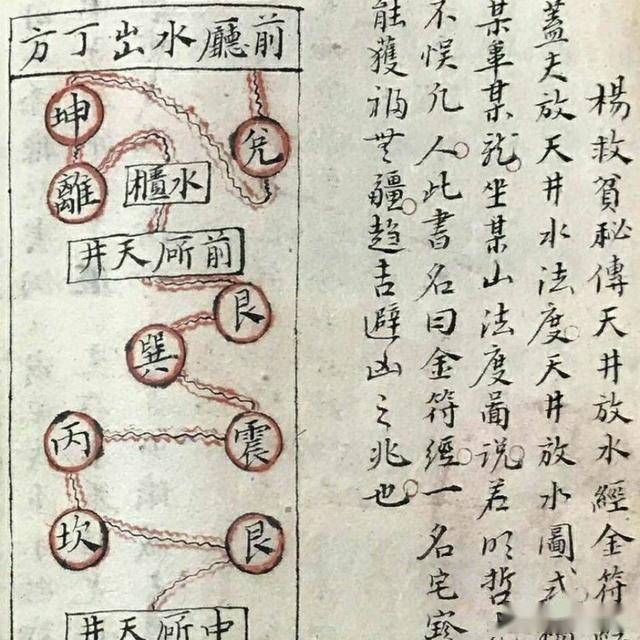 楊救貧秘傳天井放水經金符
蓋夫放天井水法度天井放水圖式
某車某龍坐某山法度圖説若明哲
不悮凡人此書名曰金符經一名宅
能獲福無疆趋吉避凶之兆也
前廳水出丁方
坤
兌
離
水櫃
前所天井
艮
巽
丙
震
坎
艮
中所天井